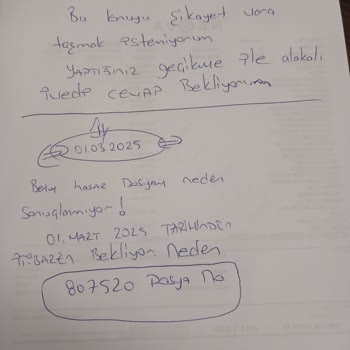 Bu konuyu şikayet vara
taşmak isteniyorum
YAPTIĞINIZ gecikme ile alakalı
ivedi CEVAP Bekliyorum
01.03.2025
hasar Dosyam neden
Sonuçlanmıyor!
01. MART 2025 TARİHİNDEN
İTİBAREN Bekliyor neden
807520 Dosya No